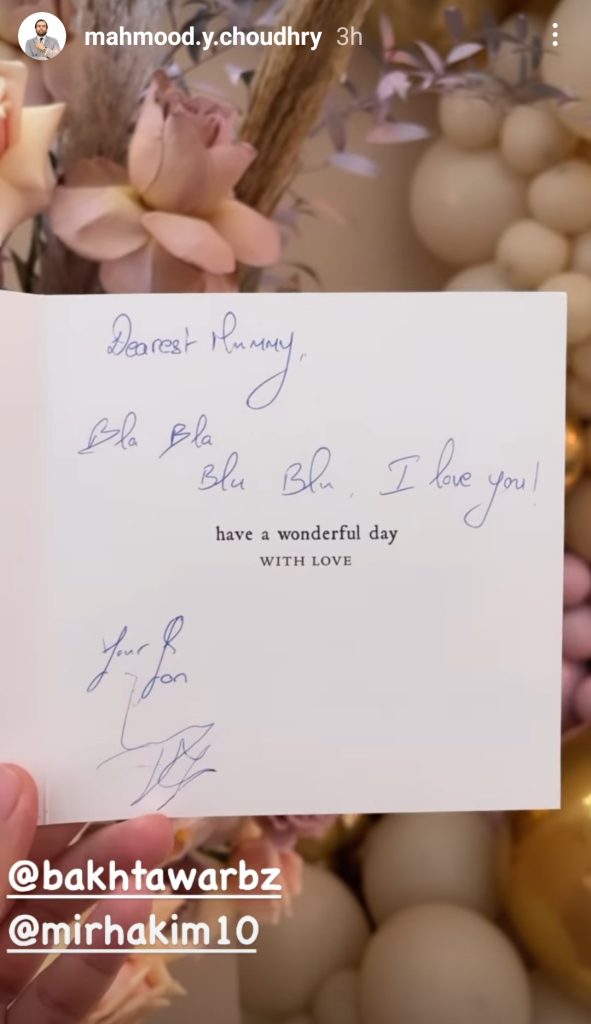 mahmood.y.choudhry 3h
Dearest Mummy,
Bla Bla
Blu Blu, I love you!
have a wonderful day
WITH LOVE
Your
Son
@bakhtawarbz
@mirhakim10